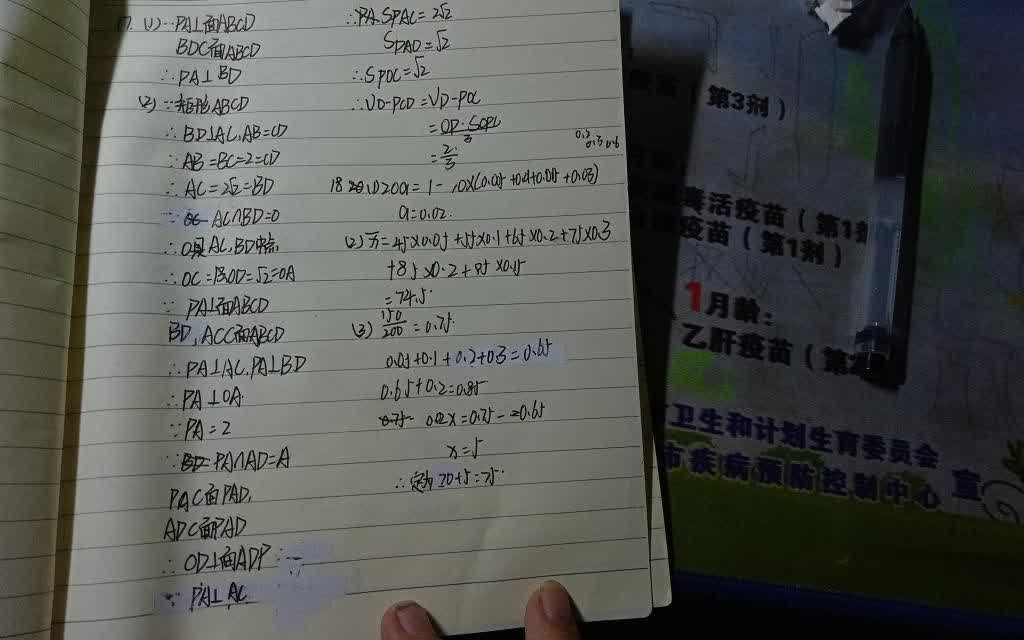 17. (1) ∵PA⊥面ABCD
BD⊂面ABCD
∴PA⊥BD
(2) ∵ ABCD
∴BD⊥AC, AB=CD
∴AB=BC=2=CD
∴AC=2√2=BD
∵ AC∩BD=O
∴O是AC,BD中点
∴OC=BOD=√2=OA
∵ PA⊥面ABCD
BD,AC⊂面ABCD
∴PA⊥AC,PA⊥BD
∴PA⊥OA
∵PA=2
∵ PA∩AD=A
PA⊂面PAD,
AD⊂面PAD
∴OD⊥面ADP
∵ PA⊥AC
∴PA.SPAC=2√2
SPAO=√2
∴SPOC=√2
∴VO-PCD=VD-POC
=
=2/3
0.3
0.3 0.6
18 (1)20a=1-10×(0.005+0.01+0.015+0.03)
a=0.02.
(2) x̄=45×0.05+55×0.1+65×0.2+75×0.3
+85×0.2+95×0.15
=74.5
(3) 150/200=0.75
0.05+0.1+0.2+0.3=0.65
0.65+0.2=0.85
0.02x=0.75-0.65
x=5
∴定为70+5=75
第3剂)
毒活疫苗(第1剂
疫苗(第1剂)
1月龄:
乙肝疫苗(第2
卫生和计划生育委员会
市疾病预防控制中心 宣